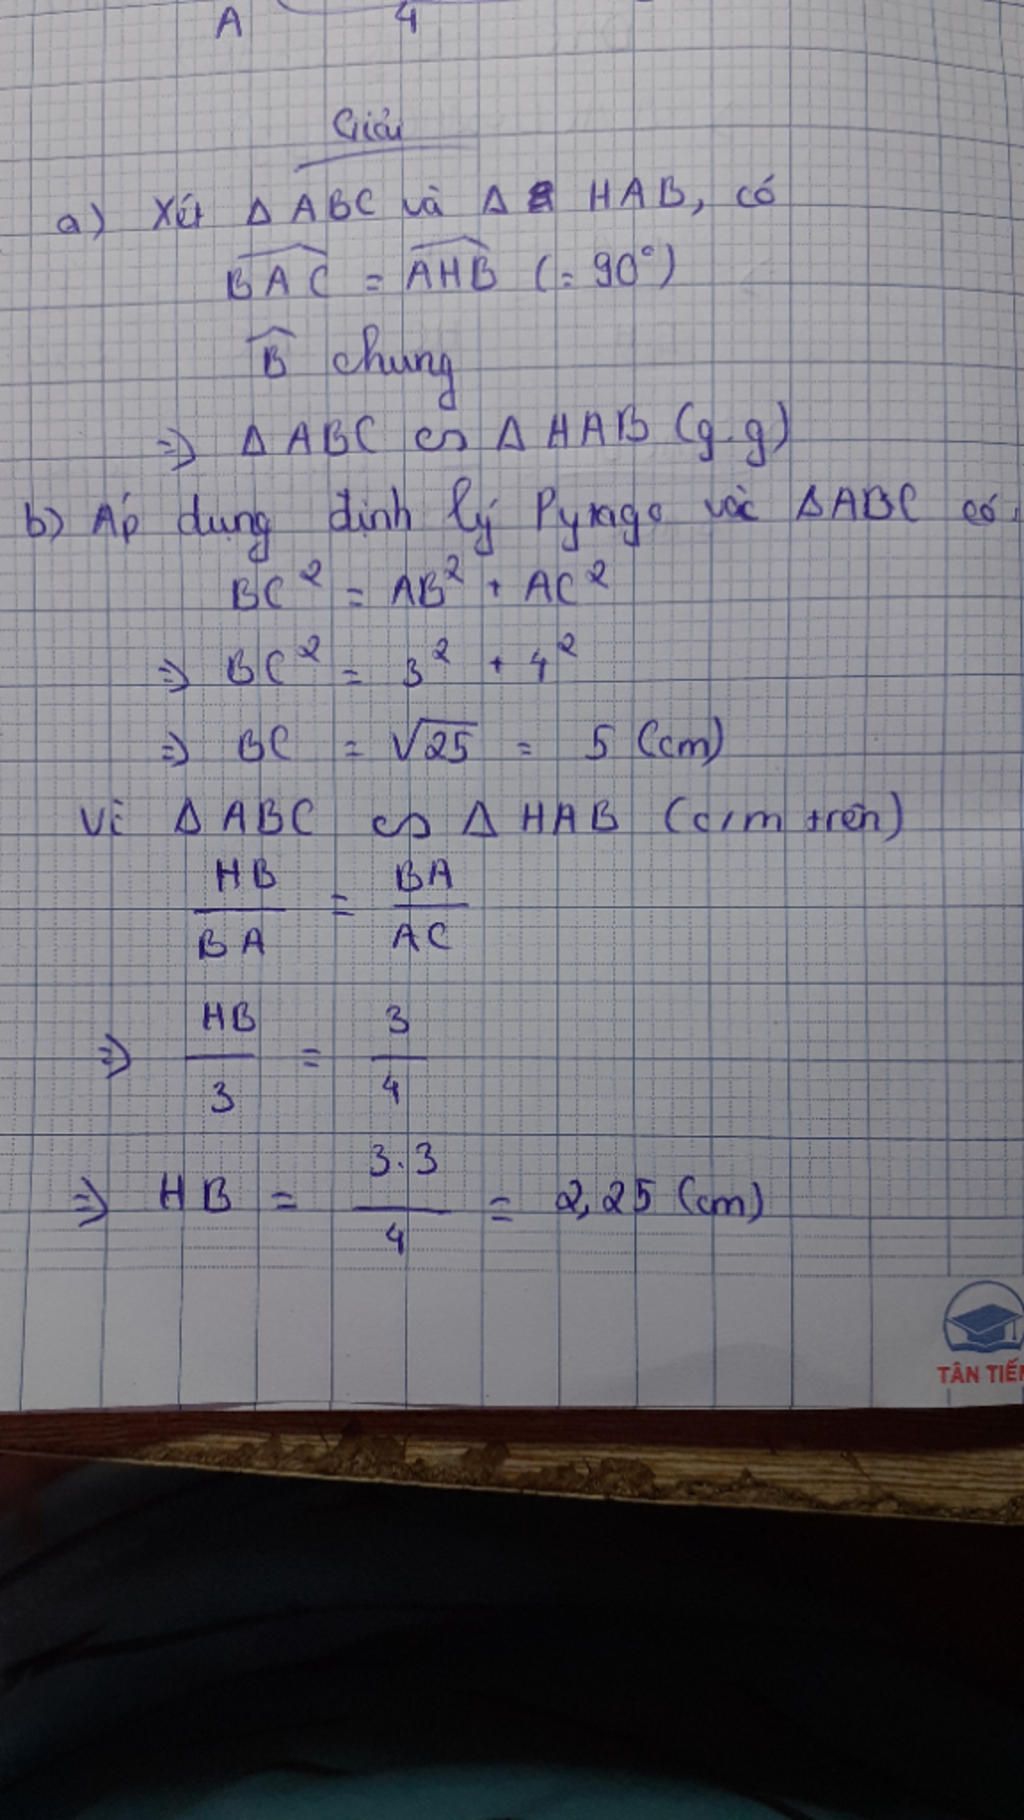 A 4
Giải
a) Xét Δ ABC và Δ HAB, có
BAC = AHB (= 90°)
B chung
⇒ Δ ABC ∽ Δ HAB (g.g)
b) Áp dụng định lý Pytago vào ΔABC có
BC² = AB² + AC²
⇒ BC² = 3² + 4²
⇒ BC = √25 = 5 (cm)
Vì Δ ABC ∽ Δ HAB (c/m trên)
HB/BA = BA/AC
⇒ HB/3 = 3/4
⇒ HB = 3.3/4 = 2,25 (cm)
TÂN TIẾN